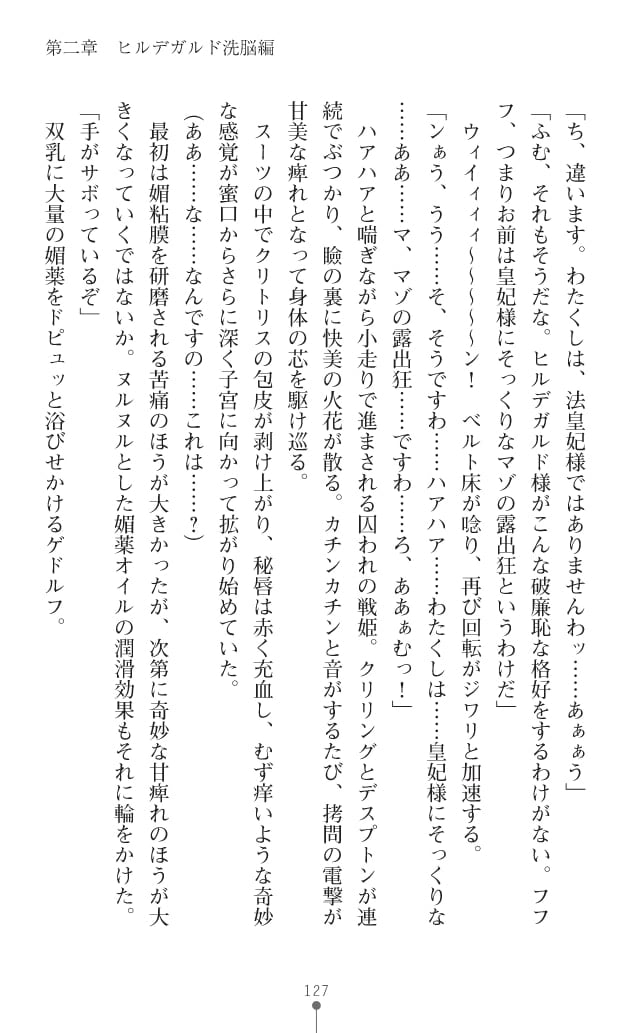 第二章　ヒルデガルド洗脳編
「ち、違います。わたくしは、法皇妃様ではありませんわッ……あぁぁう」
「ふむ、それもそうだな。ヒルデガルド様がこんな破廉恥な格好をするわけがない。フフ
フ、つまりお前は皇妃様にそっくりなマゾの露出狂というわけだ」
　ウィイィィィ〜〜〜〜〜ン！　ベルト床が唸り、再び回転がジワリと加速する。
「ンぁう、うう……そ、そうですわ……ハアハア……わたくしは……皇妃様にそっくりな
……ああ……マ、マゾの露出狂……ですわ……ろ、ああぁむっ！」
　ハアハアと喘ぎながら小走りで進まされる囚われの戦姫。クリリングとデスプトンが連
続でぶつかり、瞼の裏に快美の火花が散る。カチンカチンと音がするたび、拷問の電撃が
甘美な痺れとなって身体の芯を駆け巡る。
　スーツの中でクリトリスの包皮が剥け上がり、秘唇は赤く充血し、むず痒いような奇妙
な感覚が蜜口からさらに深く子宮に向かって拡がり始めていた。
（ああ……な……なんですの……これは……？）
　最初は媚粘膜を研磨される苦痛のほうが大きかったが、次第に奇妙な甘痺れのほうが大
きくなっていくではないか。ヌルヌルとした媚薬オイルの潤滑効果もそれに輪をかけた。
「手がサボっているぞ」
　双乳に大量の媚薬をドピュッと浴びせかけるゲドルフ。
127